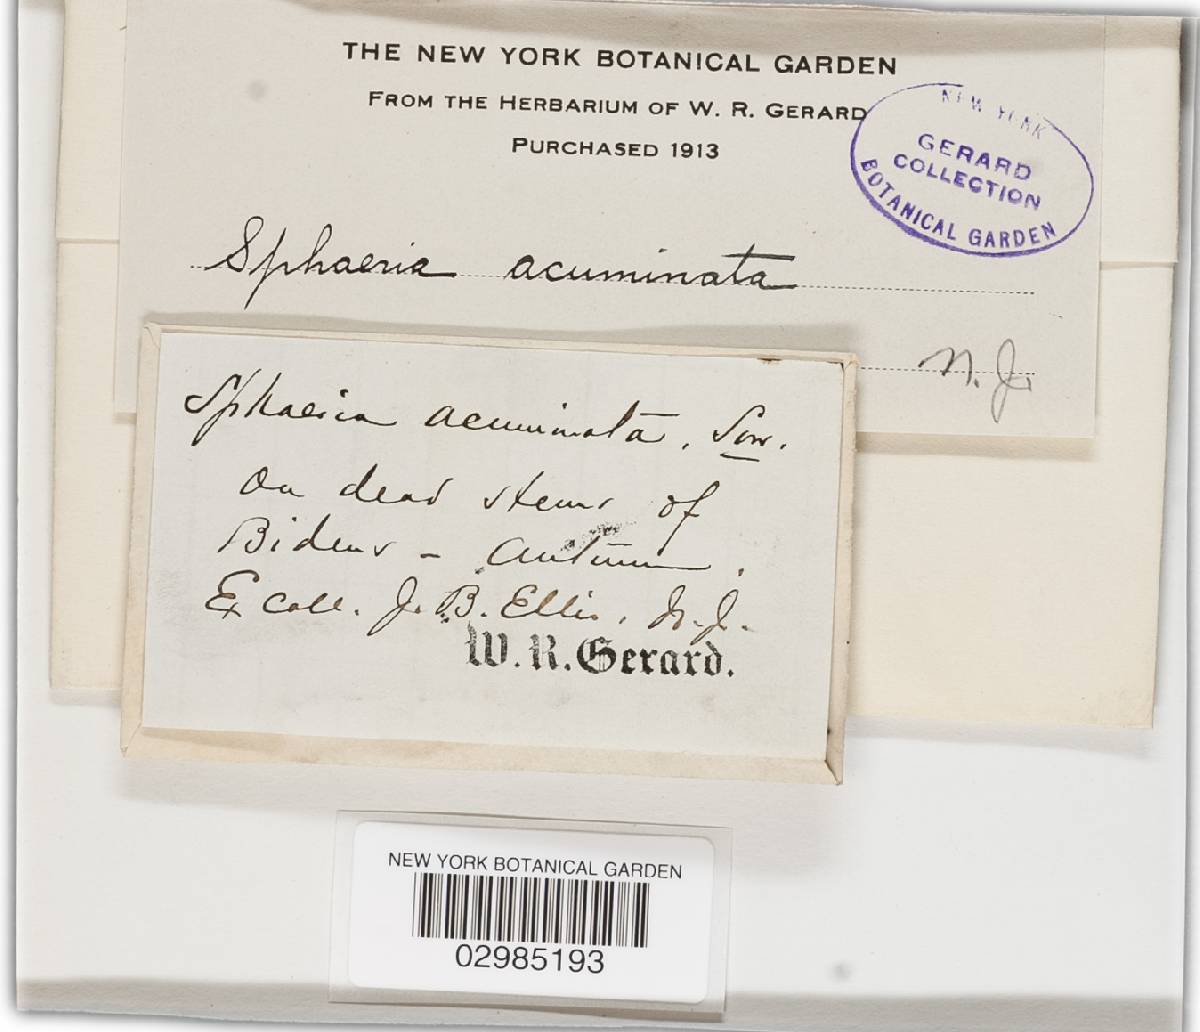 THE NEW YORK BOTANICAL GARDEN
FROM THE HERBARIUM OF W. R. GERARD
PURCHASED 1913
NEW YORK
GERARD
COLLECTION
BOTANICAL GARDEN
Sphaeria acuminata
N. J.
Sphaeria acuminata, Sow.
On dead stems of
Bidens - Autumn.
Ex coll. J. B. Ellis, N. J.
W. R. Gerard.
NEW YORK BOTANICAL GARDEN
02985193